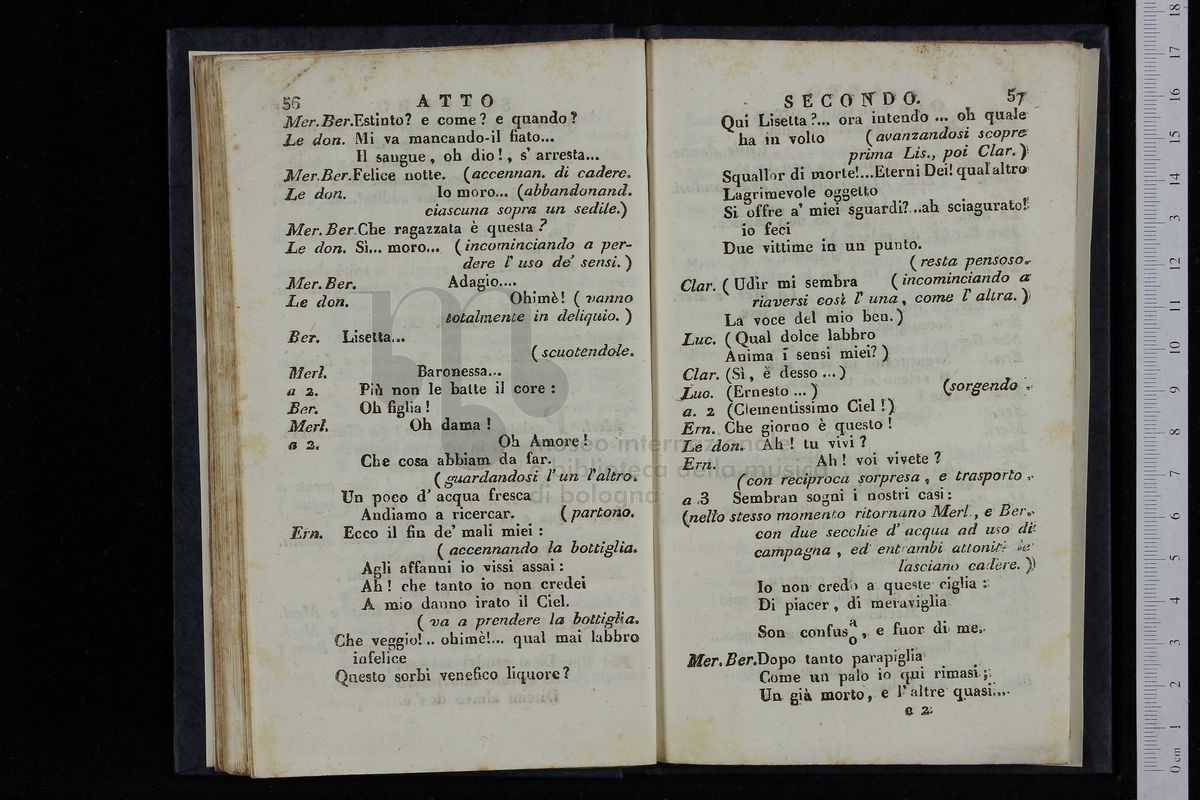 56 ATTO
Mer.Ber.Estinto? e come? e quando?
Le don. Mi va mancando-il fiato...
Il sangue, oh dio!, s' arresta...
Mer.Ber.Felice notte. (accennan. di cadere.
Le don. Io moro... (abbandonand.
ciascuna sopra un sedile.)
Mer.Ber.Che ragazzata è questa?
Le don. Sì... moro... (incominciando a per-
dere l' uso de' sensi.)
Mer.Ber. Adagio....
Le don. Ohimè! (vanno
totalmente in deliquio.)
Ber. Lisetta...
(scuotendole.
Merl. Baronessa...
a 2. Più non le batte il core:
Ber. Oh figlia!
Merl. Oh dama!
a 2. Oh Amore!
Che cosa abbiam da far.
(guardandosi l' un l'altro.
Un poco d' acqua fresca
Andiamo a ricercar. (partono.
Ern. Ecco il fin de' mali miei:
(accennando la bottiglia.
Agli affanni io vissi assai:
Ah! che tanto io non credei
A mio danno irato il Ciel.
(va a prendere la bottiglia.
Che veggio!.. ohimè!... qual mai labbro
infelice
Questo sorbì venefico liquore?
SECONDO. 57
Qui Lisetta?... ora intendo ... oh quale
ha in volto (avanzandosi scopre
prima Lis., poi Clar.)
Squallor di morte!...Eterni Dei! qual altro
Lagrimevole oggetto
Si offre a' miei sguardi?...ah sciagurato!
io feci
Due vittime in un punto.
(resta pensoso.
Clar. (Udir mi sembra (incominciando a
riaversi così l' una, come l' altra.)
La voce del mio ben.)
Luc. (Qual dolce labbro
Anima i sensi miei?)
Clar. (Sì, è desso ...)
Luc. (Ernesto ...) (sorgendo.
a. 2 (Clementissimo Ciel!)
Ern. Che giorno è questo!
Le don. Ah! tu vivi?
Ern. Ah! voi vivete?
(con reciproca sorpresa, e trasporto.
a 3 Sembran sogni i nostri casi:
(nello stesso momento ritornano Merl., e Ber.
con due secchie d' acqua ad uso di
campagna, ed entrambi attoniti le
lasciano cadere.)
Io non credo a queste ciglia:
Di piacer, di meraviglia
Son confus a/o, e fuor di me.
Mer.Ber.Dopo tanto parapiglia
Come un palo io qui rimasi;
Un già morto, e l' altre quasi...
c 2
museo internazionale
e biblioteca della musica
di bologna
0 cm 1 2 3 4 5 6 7 8 9 10 11 12 13 14 15 16 17 18